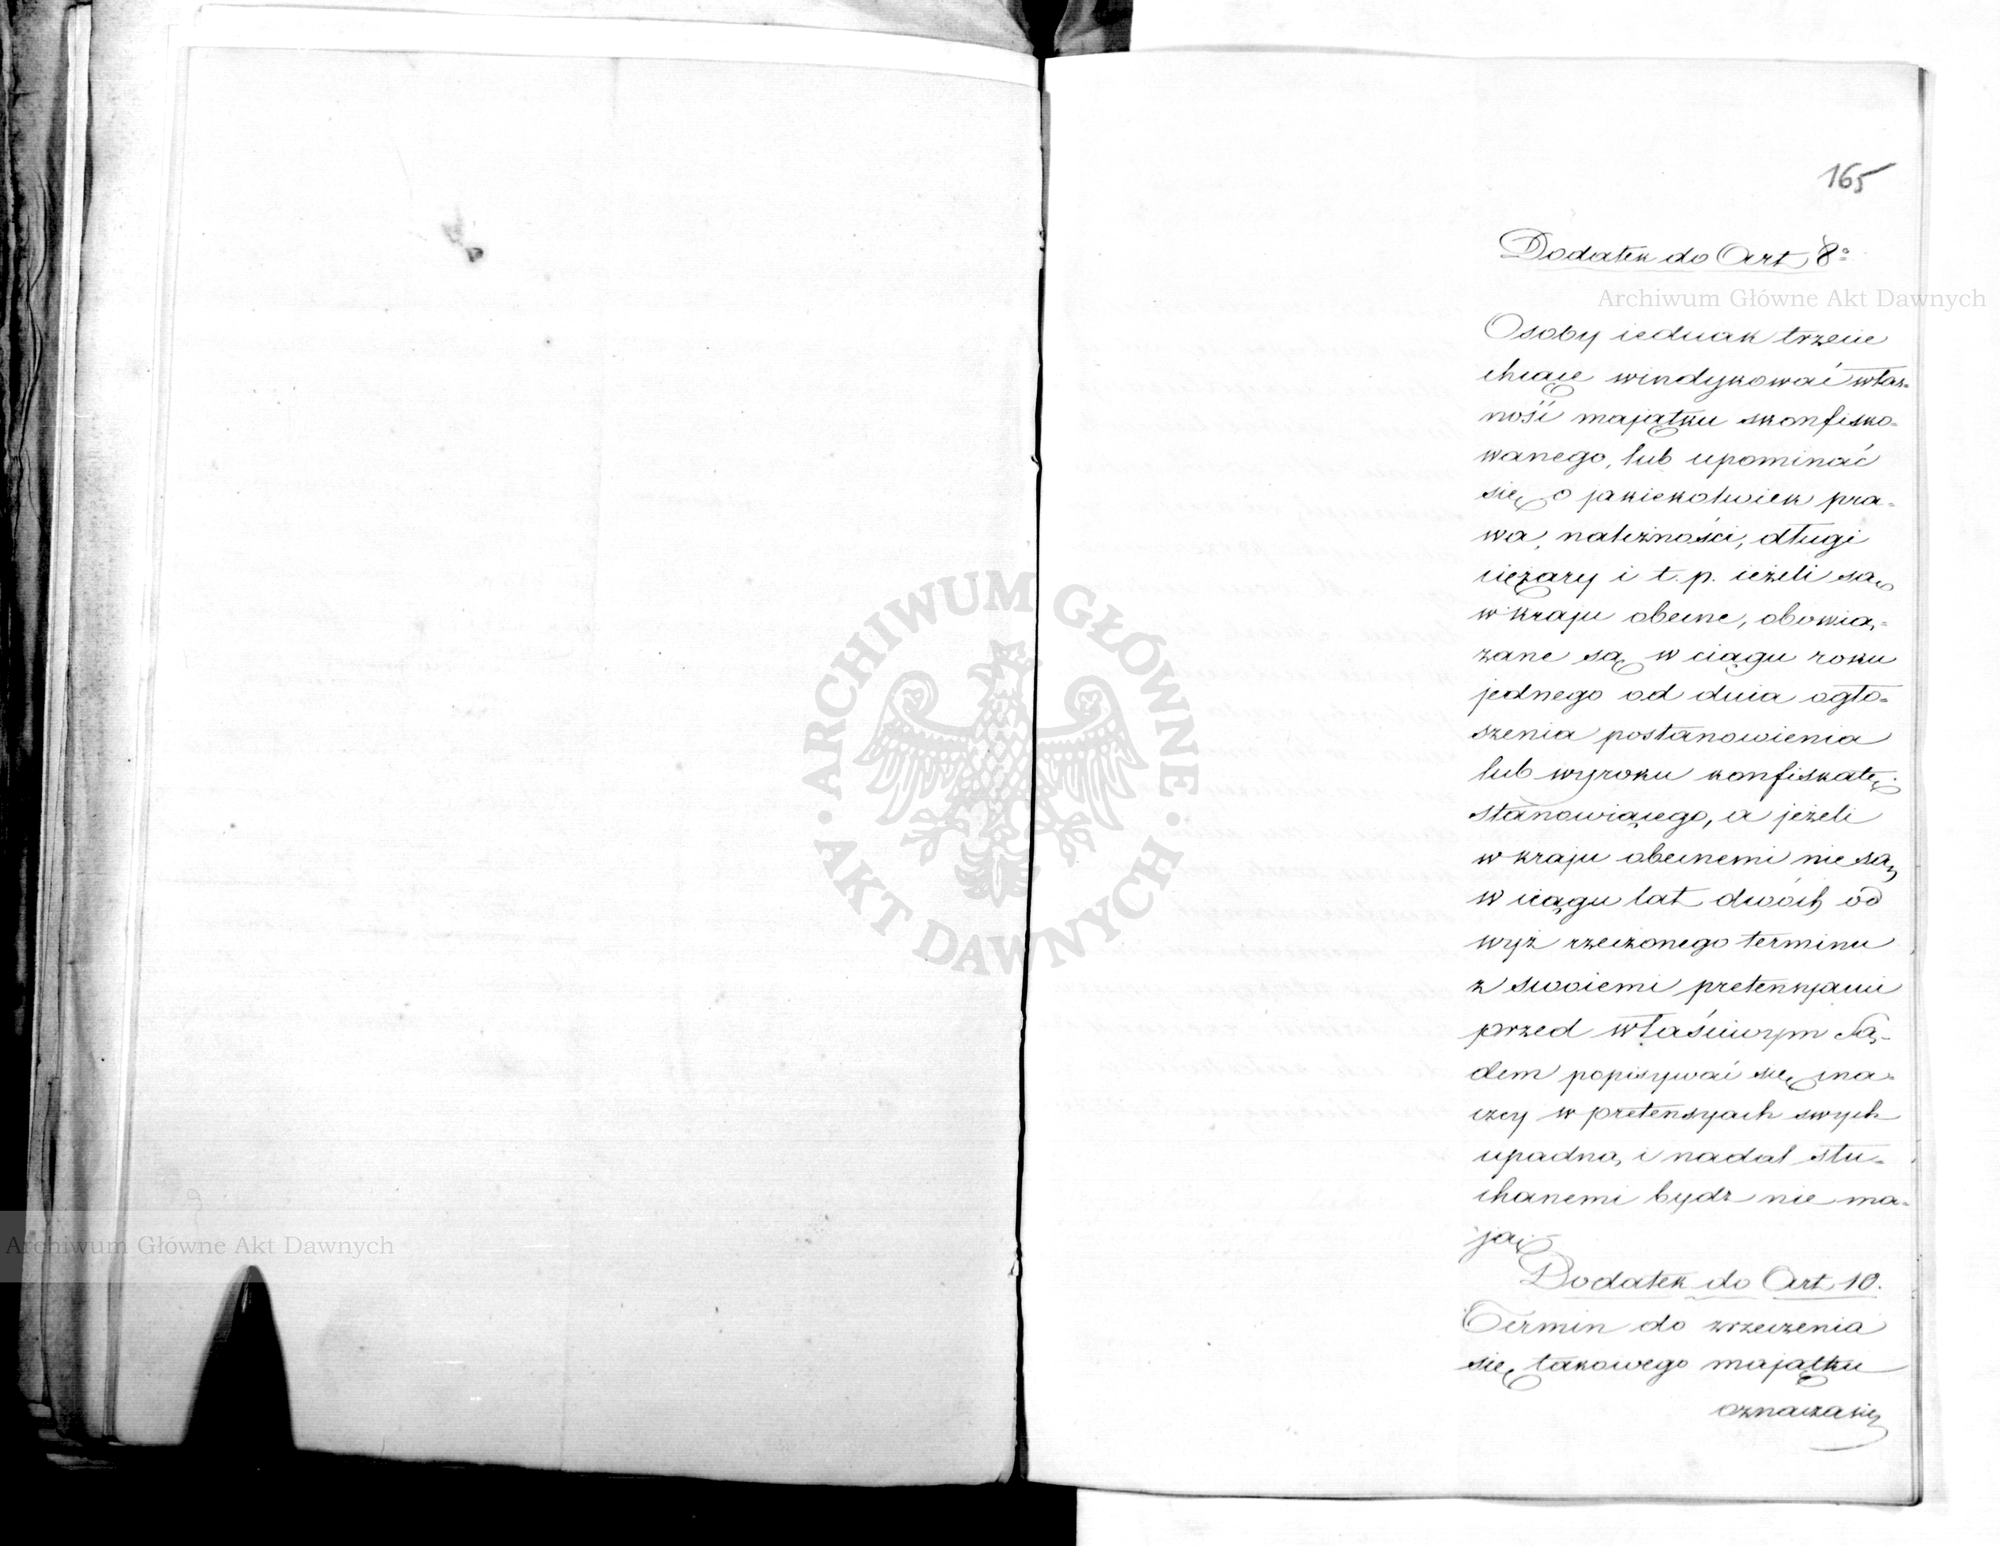 165
Dodatek do Art 8º
Archiwum Główne Akt Dawnych
Osoby iednak trzecie
chcące windykować włas=
ność majątku skonfisko=
wanego, lub upominać
się o jakiekolwiek pra=
wa, należności, długi
ciężary i t. p. ieżeli są
w kraju obecne, obowią=
zane są w ciągu roku
jednego od dnia ogło=
szenia postanowienia
lub wyroku konfiskatę
stanowiącego, a jeżeli
w kraju obecnemi nie są
w ciągu lat dwóch od
wyż rzeczonego terminu
z swoiemi pretensjami
przed właściwym Są=
dem popisywać się, ina=
czey w pretensyach swych
upadną, i nadal słu=
chanemi bydz nie ma=
ją.
Dodatek do Art 10.
Termin do zrzeczenia
się takowego majątku
oznacza się
ARCHIWUM GŁÓWNE · AKT DAWNYCH ·
Archiwum Główne Akt Dawnych